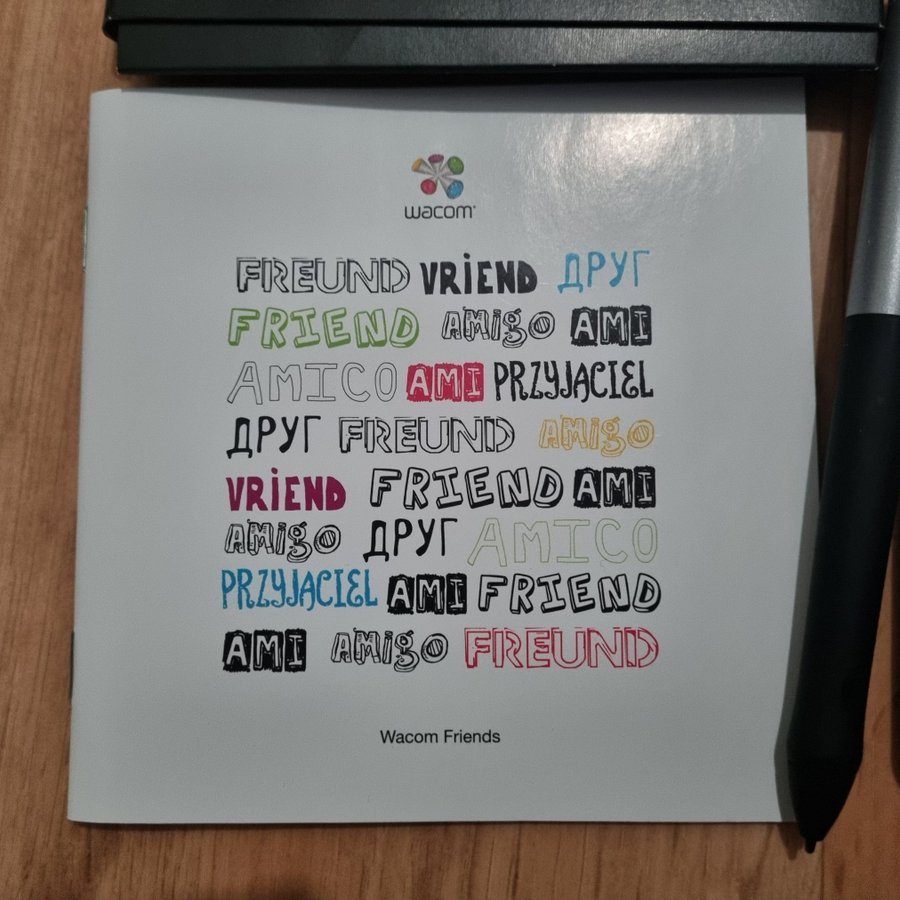 wacom®
FREUND VRiEND ДРУГ
FRIEND AMigO AMI
AMICO AMI PRZYJACIEL
ДРУГ FREUND AMigO
VRiEND FRIEND AMI
AMigO ДРУГ AMICO
PRZYJACIEL AMI FRIEND
AMI AMigO FREUND
Wacom Friends